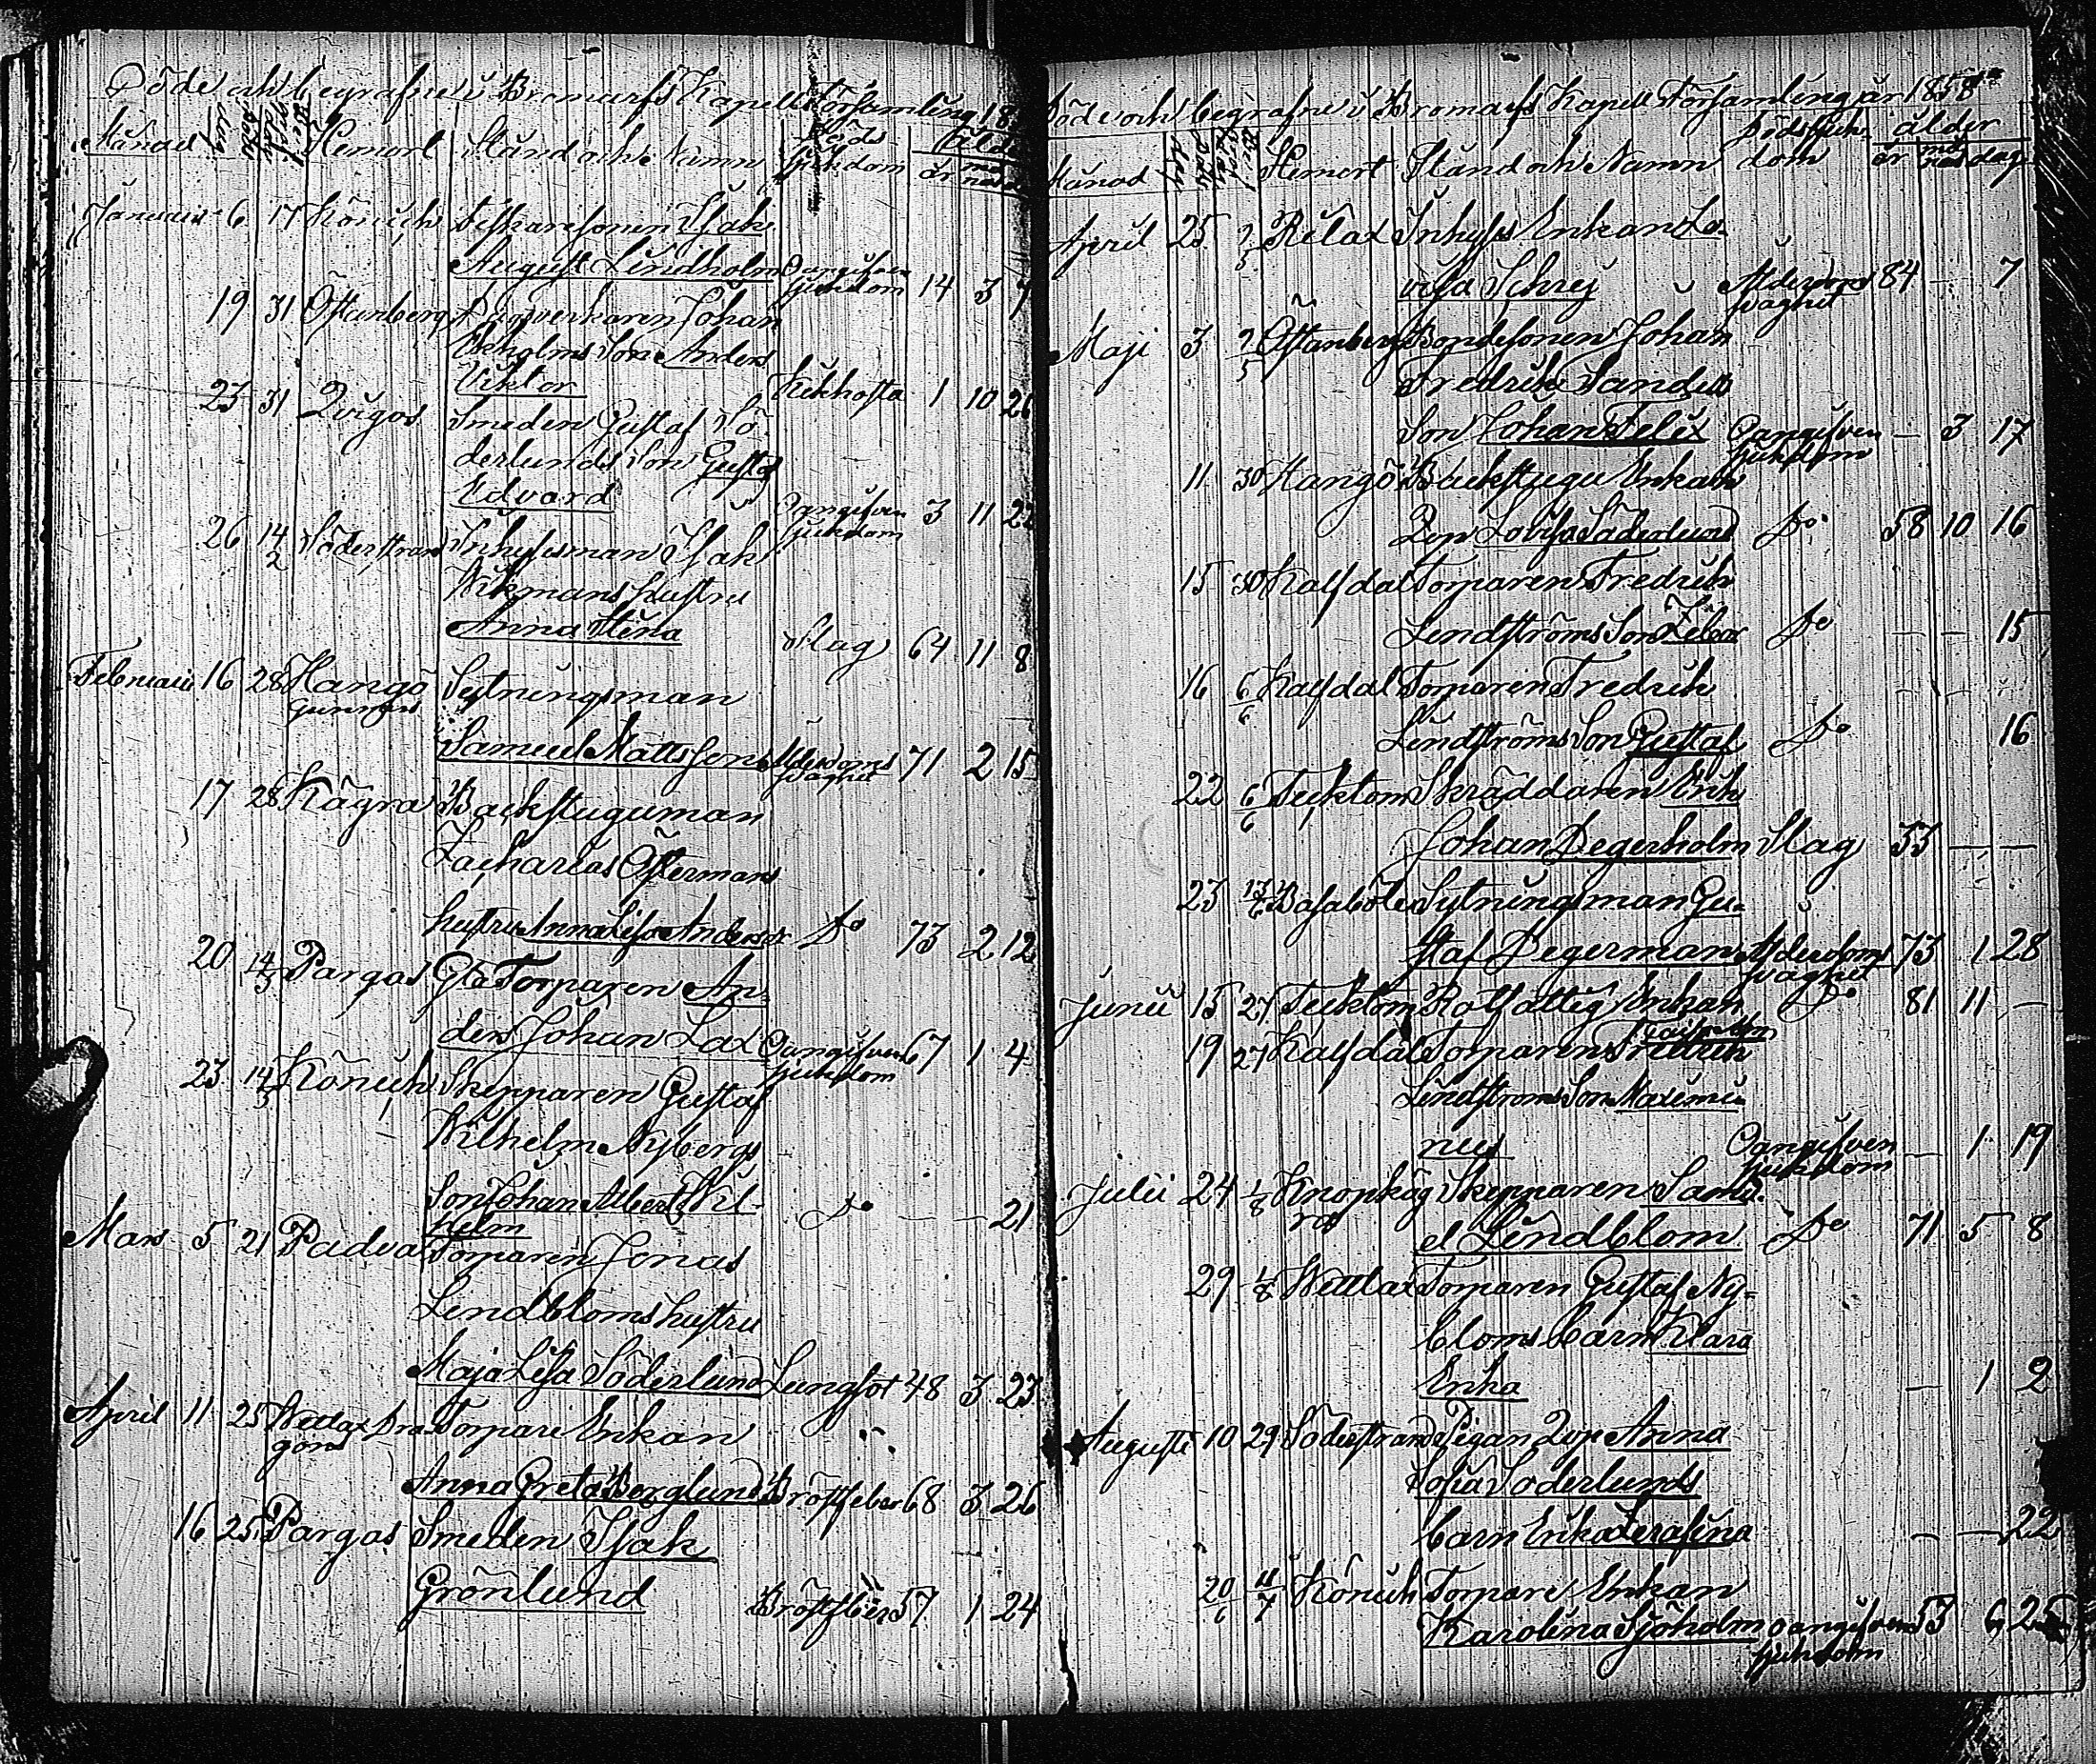 Döde och begrafne i Bromarfs Kapell Församling 18
Månad dag Hemort Stånd och Namn Döds sjukdom Ålder år
Januari 6 17 Könick Fiskaresonen Isak
August Lindholm Oangifven sjukdom 14 3 7
19 31 Östanberg Johan
Ekholms Son Anders
Viktor Kikhosta 1 10 26
23 31 Qvigos Smeden Gustaf Sö
derlunds Son Gustaf
Edvard Oangifven sjukdom 3 11 22
26 14/2 Söderstrand Inhysesman Isak
Wikmans hustru
Anna Stina Slag 64 11 8
Februarii 16 28 Hangö Sytningsman
Samuel Mattsson Ålderdoms svaghet 71 2 15
17 28 Kågra Backstuguman
Zacharias Östermans
hustru Anna Lisa Andersdr Do 73 2 12
20 14/3 Pargas Gla Torparen An=
ders Johan Lax Oangifven sjukdom 67 1 4
23 14/3 Könick Skepparen Gustaf
Wilhelm Nybergs
Son Johan Albert Wil-
helm Do — — 21
Mars 5 21 Padva Torparen Jonas
Lindbloms hustru
Maja Lisa Söderlund Lungsot 48 3 23
April 11 25 Wetlax Dra Torpare Enkan
gons
Anna Greta Berglund Bröstfeber 68 3 26
16 25 Pargas Smeden Isak
Grönlund Bröstfeber 57 1 24
Döde och begrafne i Bromarfs Kapell Församling år 1858
Månad dag Hemort Stånd och Namn Dödssjuk- dom ålder år må nad dag
April 25 2/5 Rilax Inhyses Enkan Lo-
visa Schrey Ålderdoms svaghet 84 — 7
Maji 3 2/5 Östanberg Bondesonen Johan
Fredrik Sandells
Son Johan Felix Oangifven sjukdom — 3 17
11 30 Hangö Backstugu Enkan
Lovisa Söderlund Do 58 10 16
15 30 Kalfdal Torparen Fredrik
Lindströms Son Do — — 15
16 6/6 Kalfdal Torparen Fredrik
Lindströms Son Gustaf Do 16
22 6/6 Tecktom Skräddaren Erik
Johan Degerholm Slag 53 — —
23 13/6 Båsaböle Sytningsman Gu=
staf Degerman Ålderdoms svaghet 73 1 28
Junii 15 27 Tecktom Rotfattig Enkan Do 81 11 —
19 27 Kalfdal Torparen Fredrik
Lindströms Son Maximi
nus Oangifven sjukdom — 1 19
Julii 24 1/8 Knopskog Skepparen Samu-
el Lindblom Do 71 5 8
29 1/8 Wettlax Torparen Gustaf Ny=
bloms barn Klara
Erika — 1 2
Augusti 10 29 Söderstrand Pigan Qvp Anna
Sofia Söderlunds
barn Erika Serafina — — 22
20/6 4/7 Könick Torpare Enkan
Karolina Sjöholm oangifven 53 6 25
sjukdom